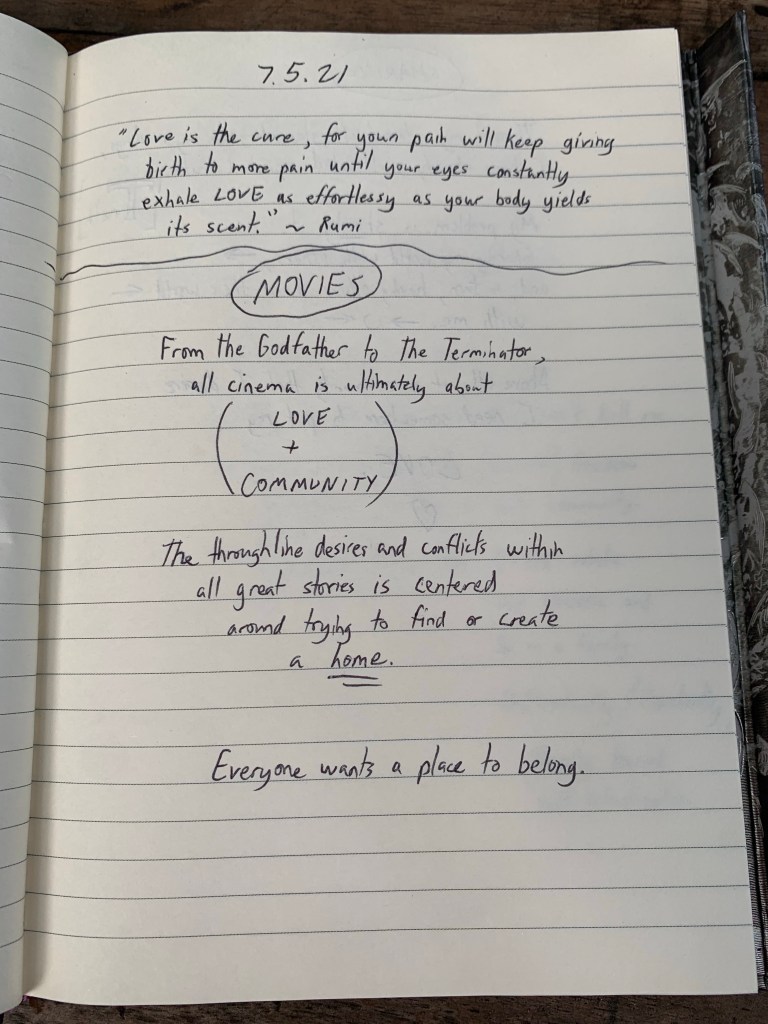 7.5.21
"Love is the cure, for your pain will keep giving
birth to more pain until your eyes constantly
exhale LOVE as effortlessy as your body yields
its scent." ~ Rumi
MOVIES
From the Godfather to The Terminator,
all cinema is ultimately about
(LOVE
+
COMMUNITY)
The throughline desires and conflicts within
all great stories is centered
around trying to find or create
a home.
Everyone wants a place to belong.